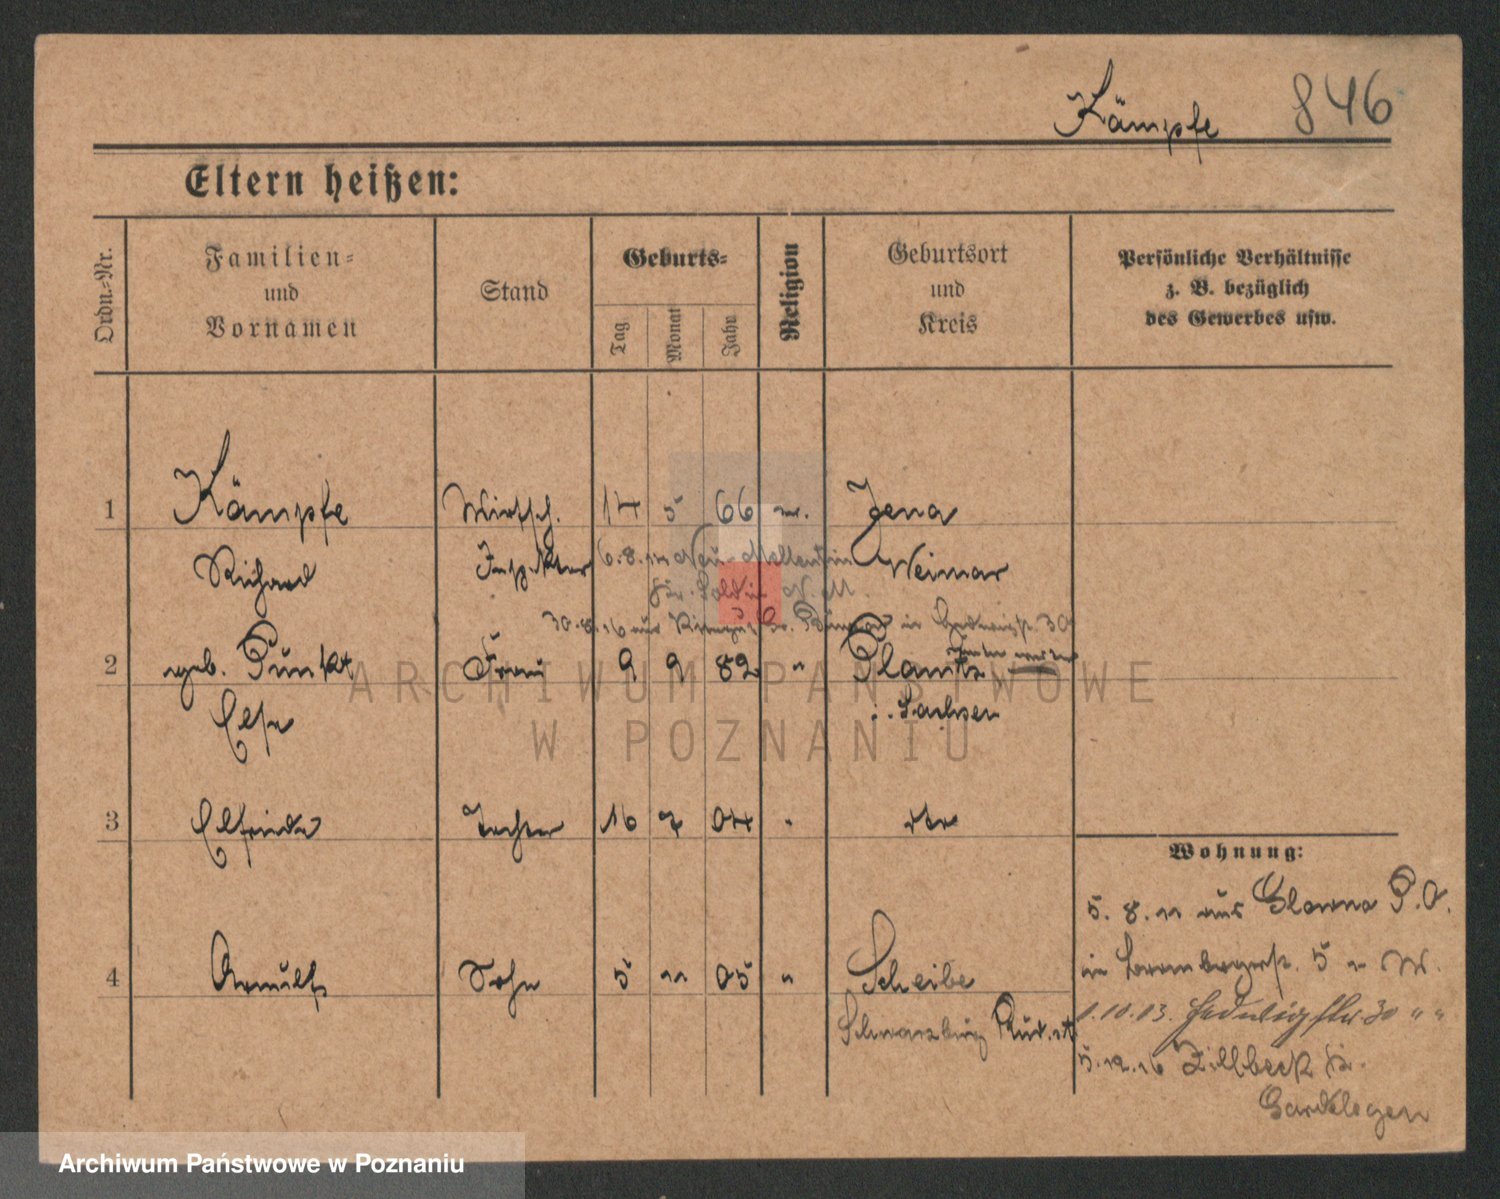 Kämpfe 846
Eltern heißen:
Ordn.-Nr.
Familien-
und
Vornamen
Stand
Geburts-
Tag
Monat
Jahr
Religion
Geburtsort
und
Kreis
Persönliche Verhältnisse
z. B. bezüglich
des Gewerbes usw.
1 Kämpfe Wirtsch. 14 5 66 Jena
Richard Inspektor Weimar
6.8.
30.8.16 aus
2 geb. Punkt Frau 9 9 82 " Planitz
Else i. Sachsen
3 Elfriede Tochter 16 7 04 "
4 Arnulf Sohn 5 11 05 " Scheibe
Schwarzburg Rud.
Wohnung:
5. 8. 11 aus P. O.
in Brombergerstr. 5 W.
Hedwigstr. 30 " "
5.12.16 Kr.
Gardelegen
ARCHIWUM PAŃSTWOWE
W POZNANIU
Archiwum Państwowe w Poznaniu